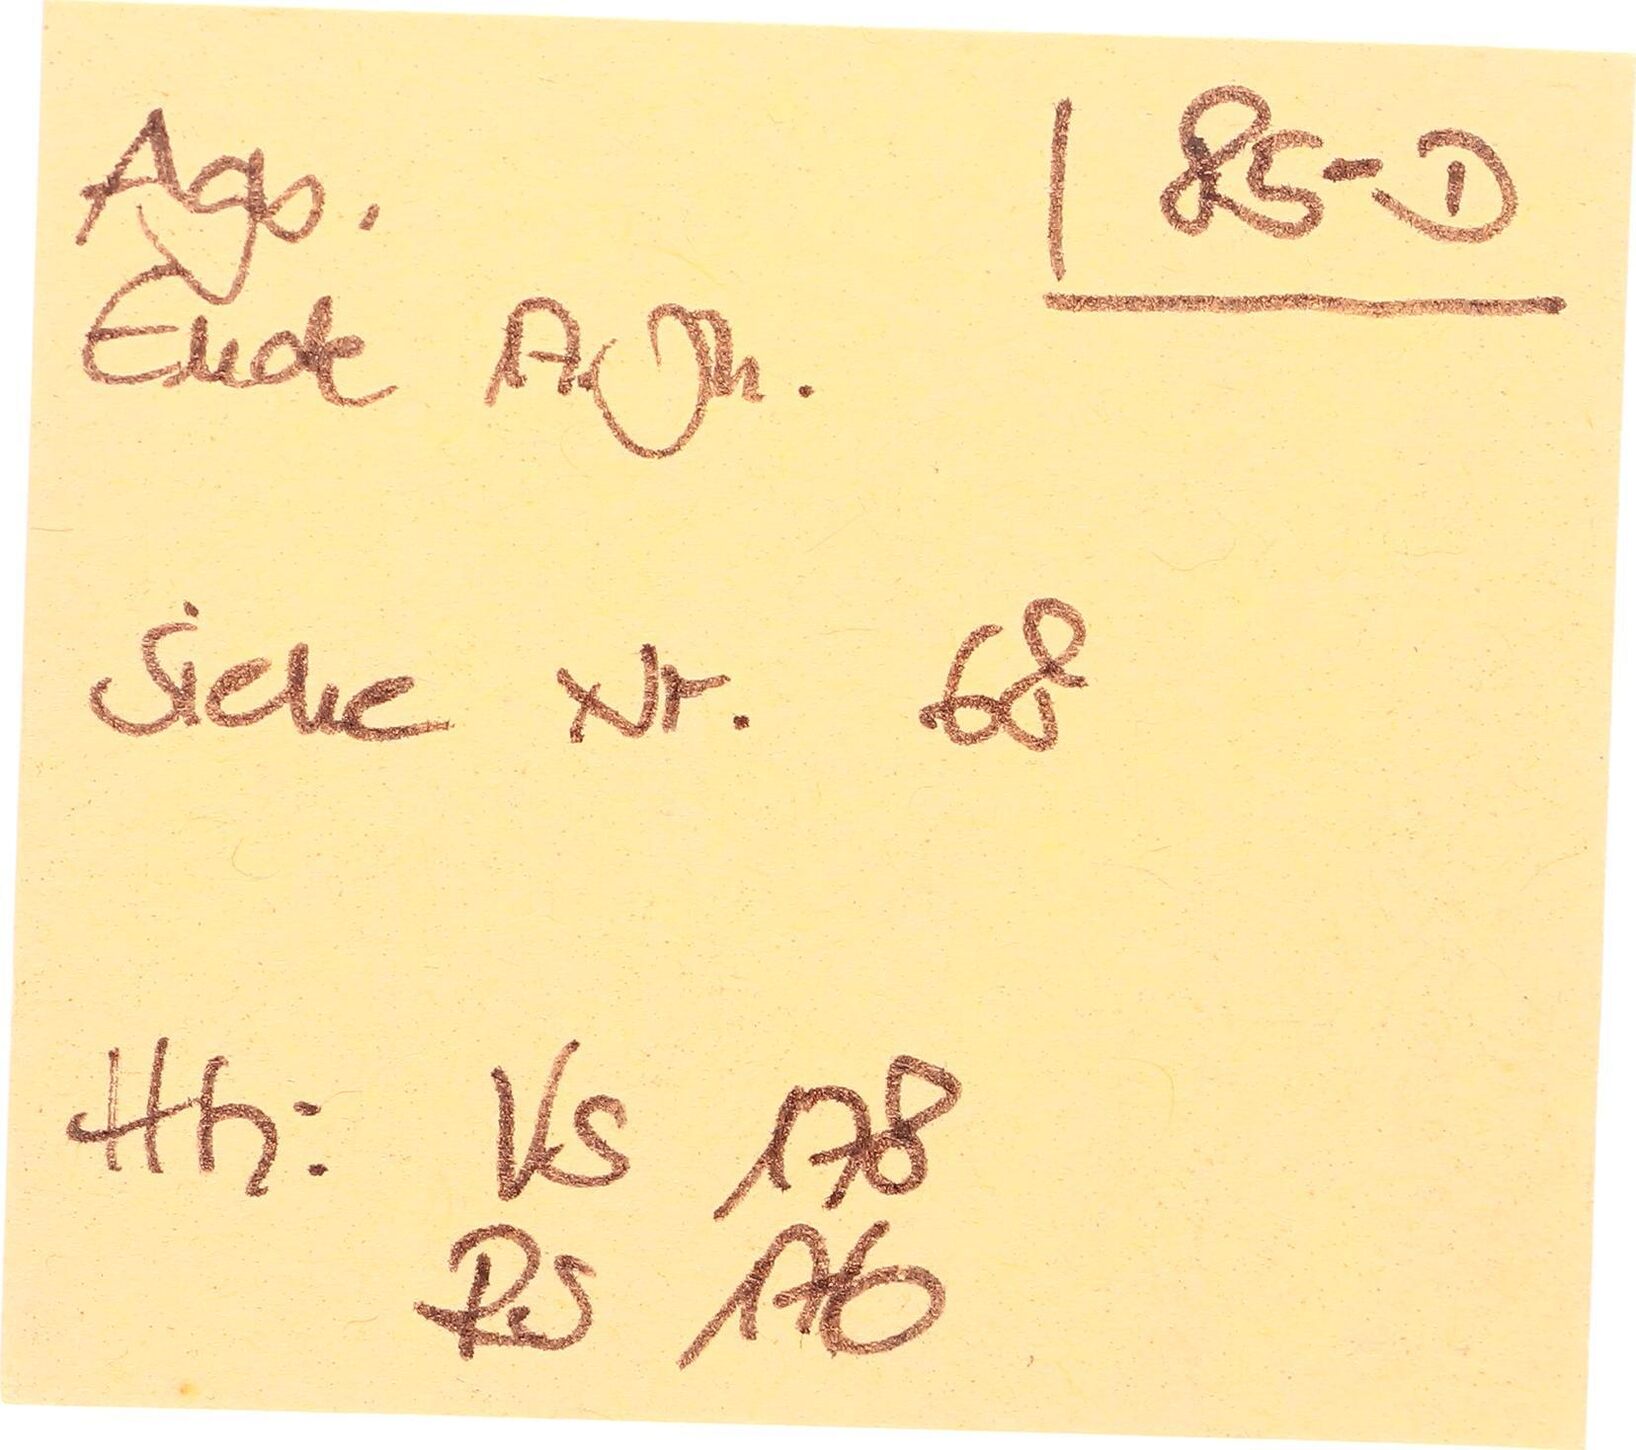 Agb. 85-D
Ende 17. Jh.
Siehe Nr. 68
Hh: VS 178
RS 176